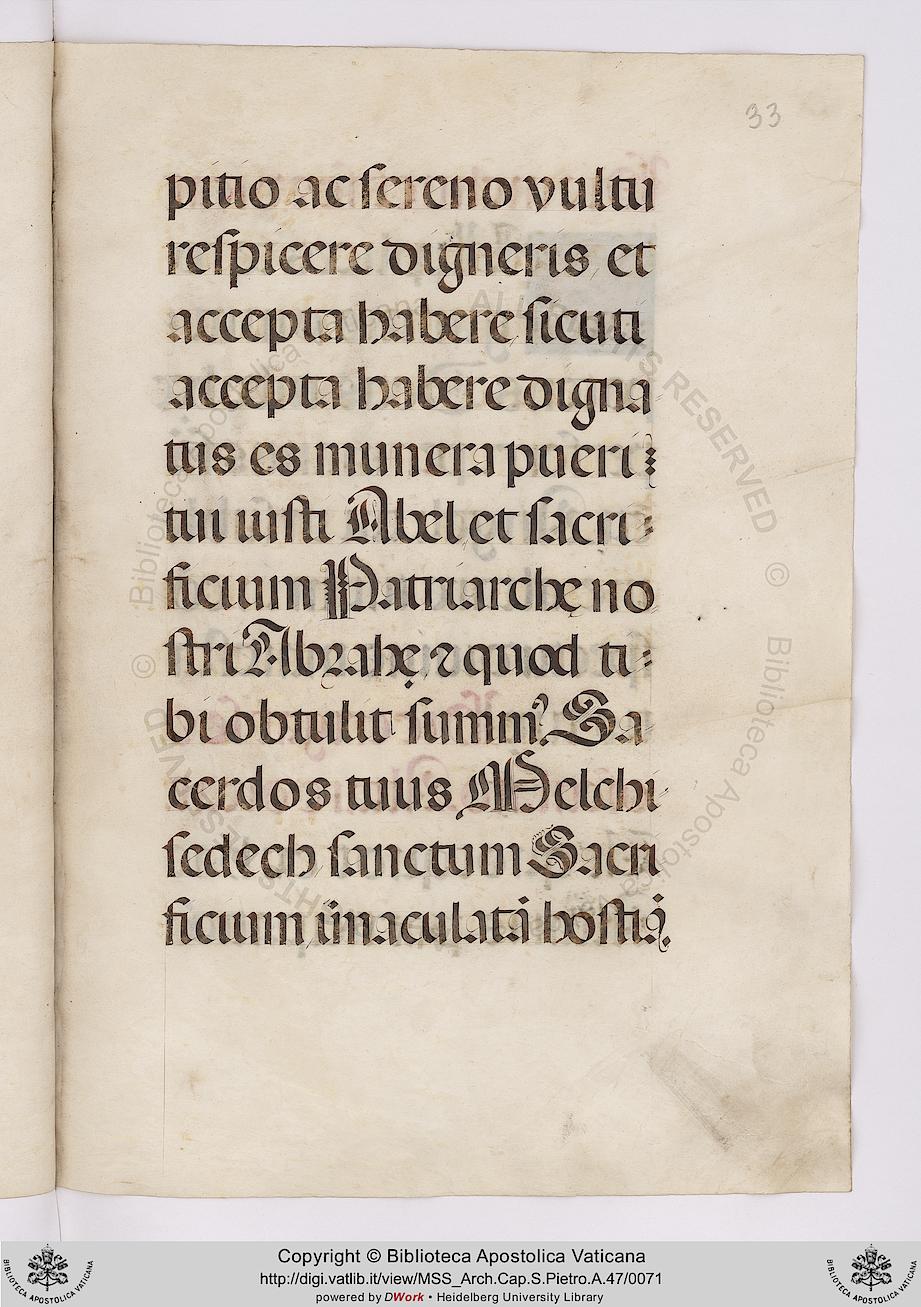 33
pitio ac sereno vultu
respicere digneris et
accepta habere sicuti
accepta habere digna
tus es munera pueri
tui iusti Abel et sacri-
ficium Patriarche no
stri Abrahę ⁊ quod ti-
bi obtulit summꝰ Sa
cerdos tuus Melchi
sedech sanctum Sacri
ficium īmaculatā hostiā.
Copyright © Biblioteca Apostolica Vaticana
http://digi.vatlib.it/view/MSS_Arch.Cap.S.Pietro.A.47/0071
powered by DWork • Heidelberg University Library
BIBLIOTECA APOSTOLICA VATICANA
BIBLIOTECA APOSTOLICA VATICANA